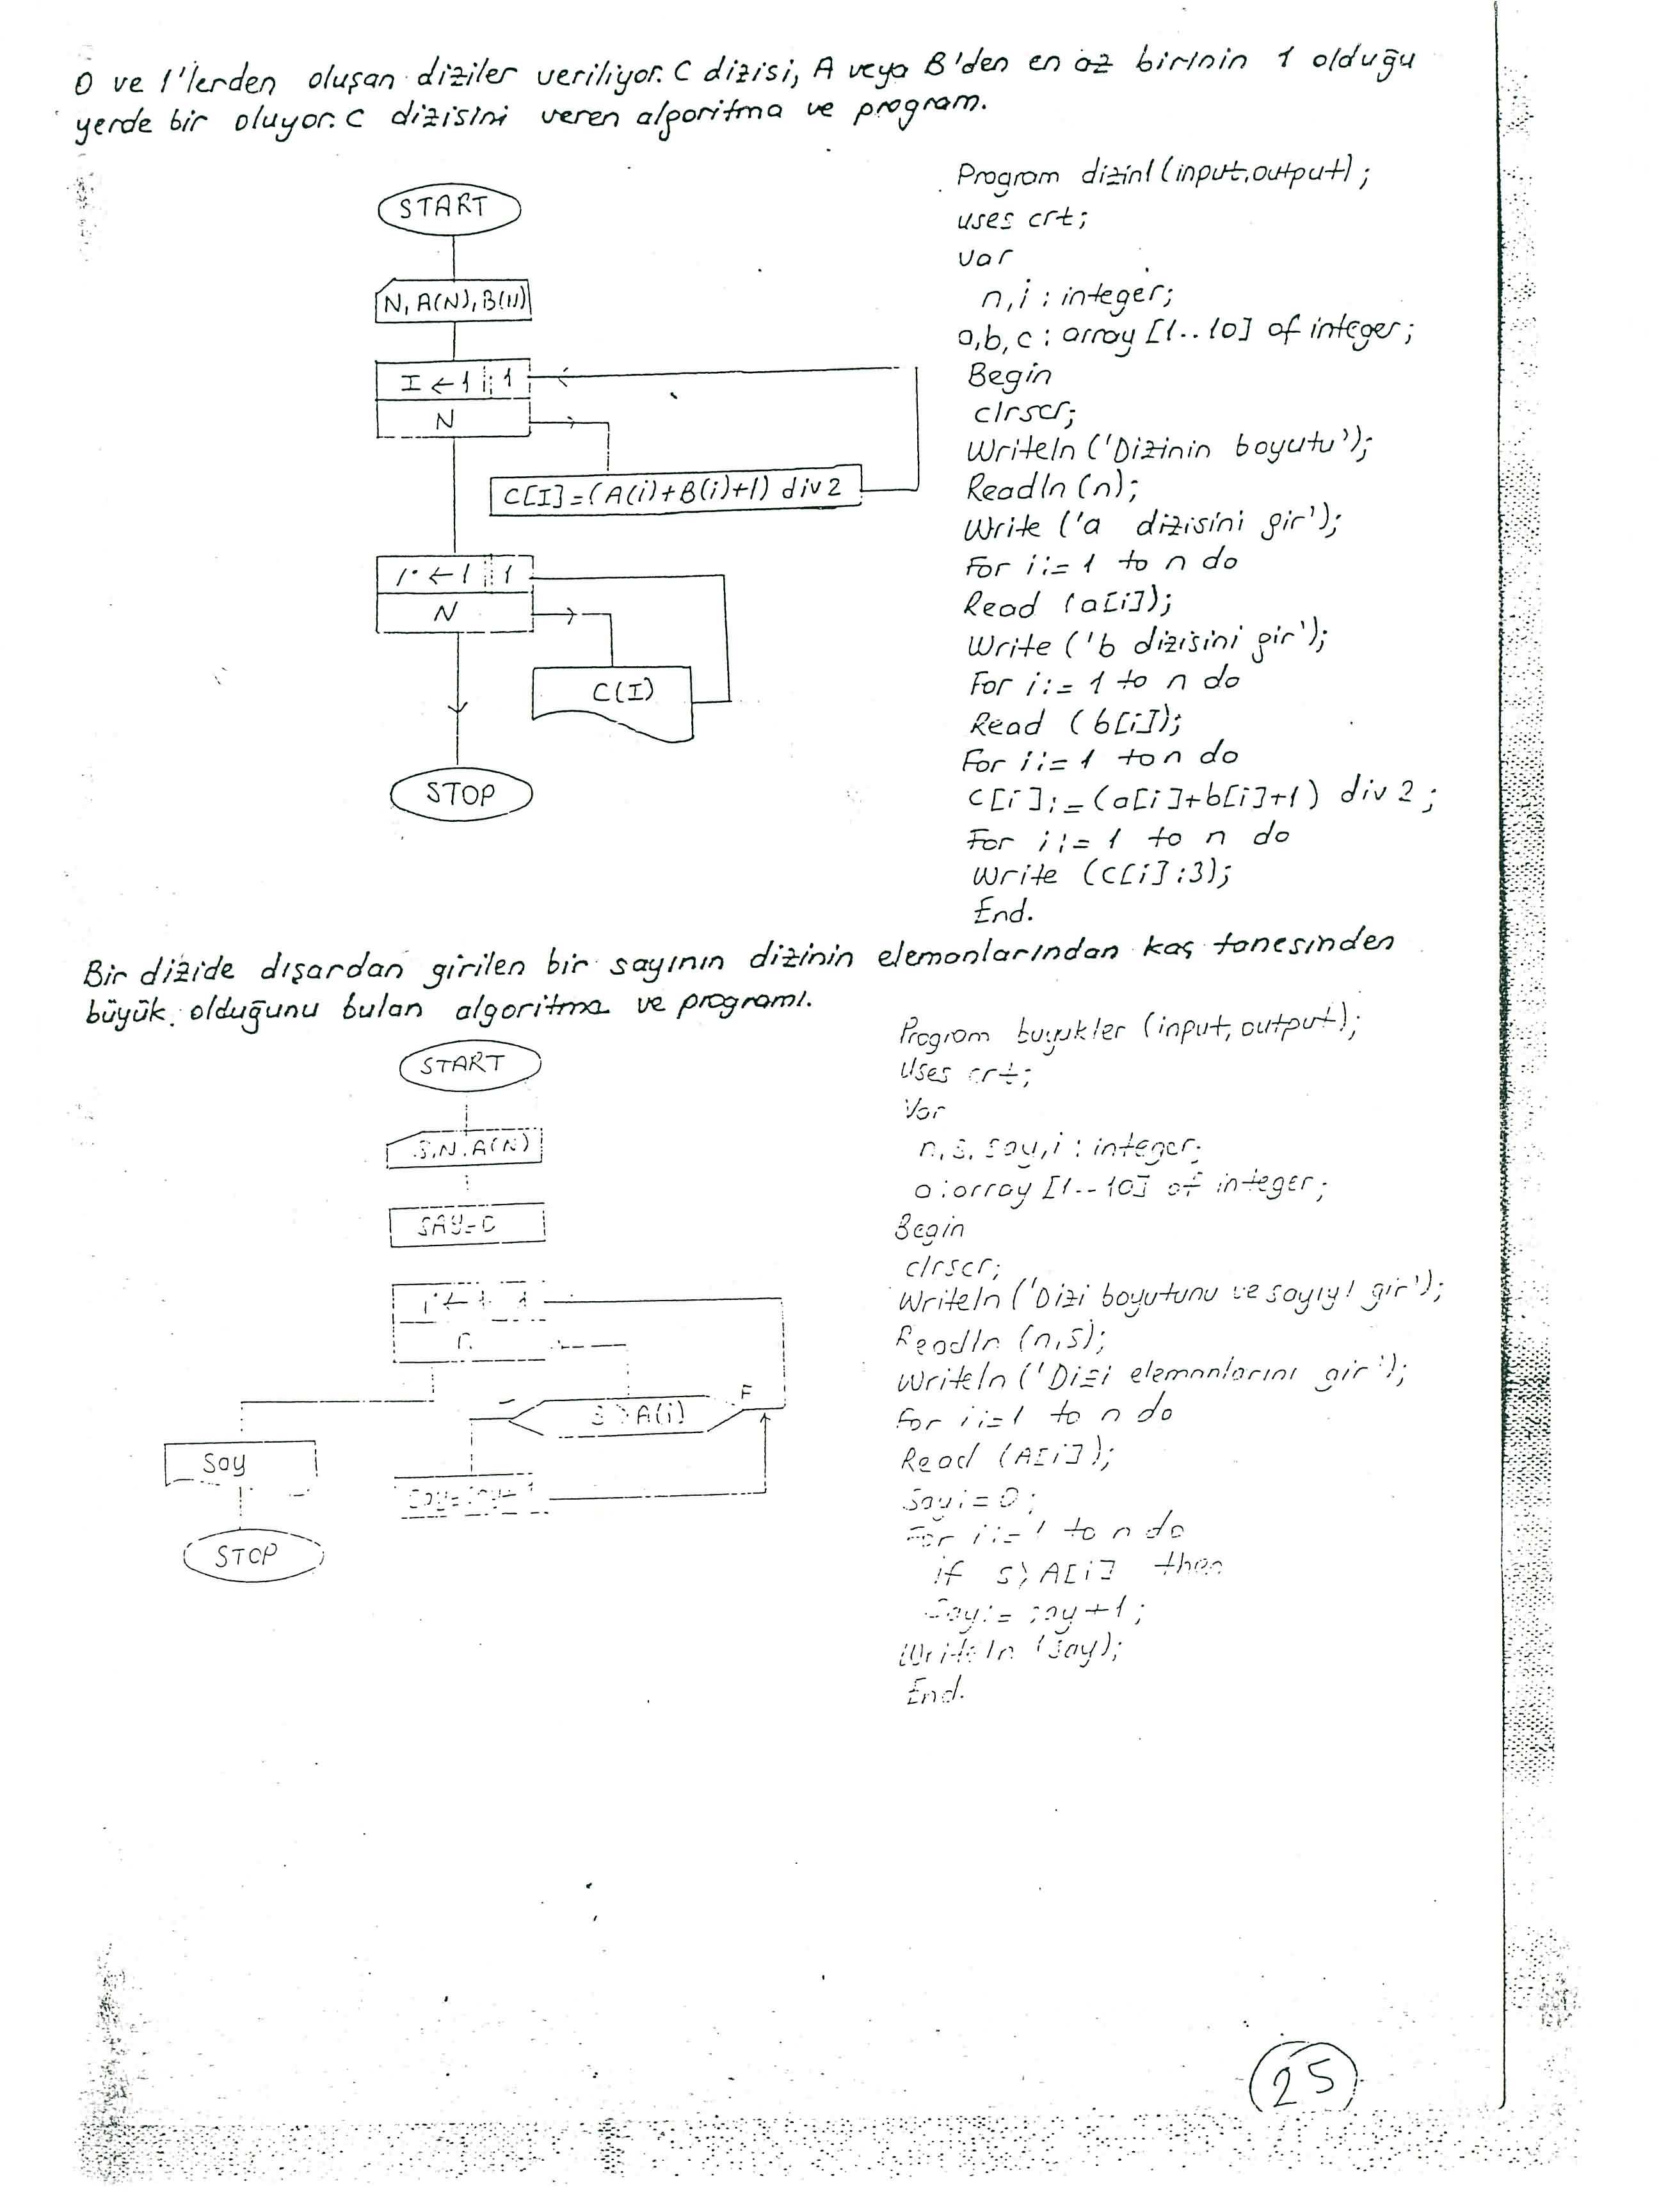 0 ve 1'lerden oluşan diziler veriliyor. C dizisi, A veya B'den en az birinin 1 olduğu
yerde bir oluyor. C dizisini veren algoritma ve program.
START
N, A(N), B(N)
I ← 1 1
N
C[I]=(A(i)+B(i)+1) div 2
i ← 1 1
N
C(I)
STOP
Program dizin1(input,output);
uses crt;
var
n,i : integer;
a,b,c : array [1..10] of integer;
Begin
clrscr;
Writeln ('Dizinin boyutu');
Readln (n);
Write ('a dizisini gir');
For i:= 1 to n do
Read (a[i]);
Write ('b dizisini gir');
For i:= 1 to n do
Read (b[i]);
For i:= 1 to n do
c[i]:=(a[i]+b[i]+1) div 2;
For i:= 1 to n do
Write (c[i]:3);
End.
Bir dizide dışardan girilen bir sayının dizinin elemanlarından kaç tanesinden
büyük olduğunu bulan algoritma ve programı.
START
S,N,A(N)
SAY=0
i ← 1 1
n
S>A(i)
F
Say=Say+1
Say
STOP
Program buyukler (input,output);
Uses crt;
Var
n,s,say,i : integer;
a:array [1..10] of integer;
Begin
clrscr;
Writeln ('Dizi boyutunu ve sayıyı gir');
Readln (n,s);
Writeln ('Dizi elemanlarını gir');
For i:=1 to n do
Read (A[i]);
Say:=0;
For i:=1 to n do
if s>A[i] then
Say:=say+1;
Writeln (say);
End.
25